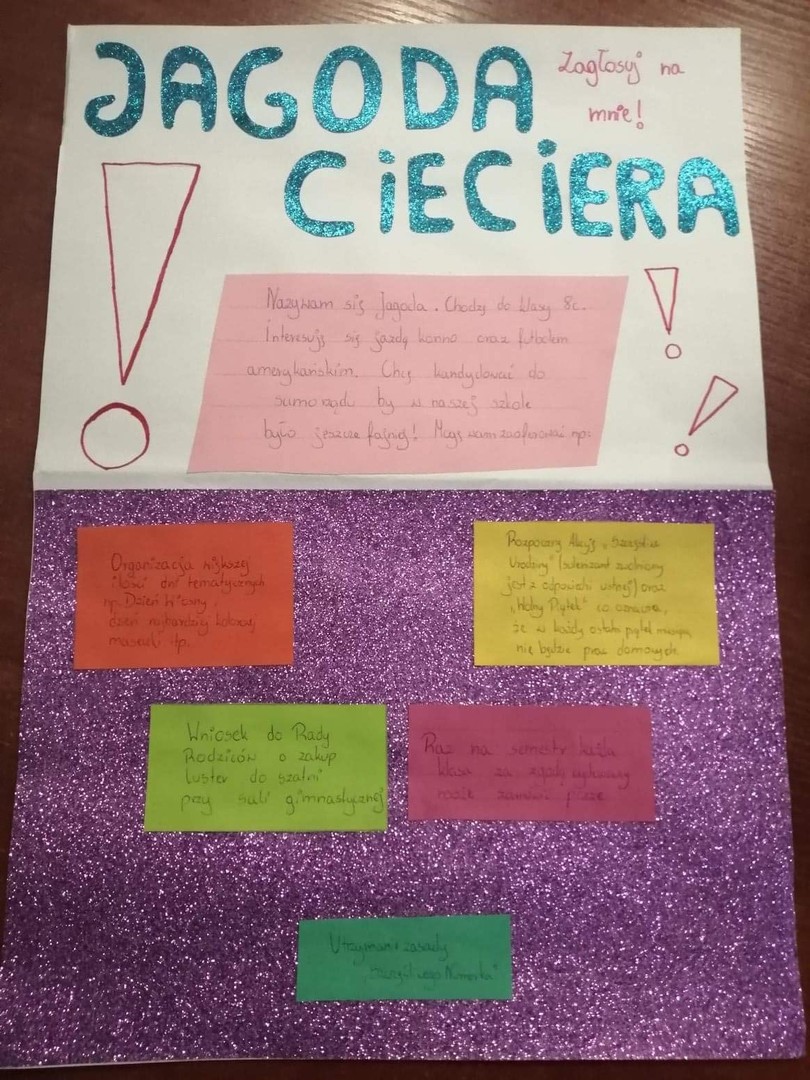 JAGODA
Zagłosuj na
mnie!
CiECiERA
Nazywam się Jagoda. Chodzę do klasy 8c.
Interesuję się jazdą konno oraz futbolem
amerykańskim. Chcę kandydować do
samorządu by w naszej szkole
było jeszcze fajniej! Mogę wam zaoferować np:
Organizacja większej
ilości dni tematycznych
np. Dzień Wiosny,
dzień najbardziej kolorowej
maseczki itp.
Rozpocznę Akcję „Szczęśliwe
Urodziny" (solenizant zwolniony
jest z odpowiedzi ustnej) oraz
„Wolny Piątek" co oznacza,
że w każdy ostatni piątek miesiąca
nie będzie prac domowych.
Wniosek do Rady
Rodziców o zakup
luster do szatni
przy sali gimnastycznej
Raz na semestr każda
klasa za zgodą wychowawcy
może zamówić pizzę
Utrzymanie zasady
„Szczęśliwego Numerka"